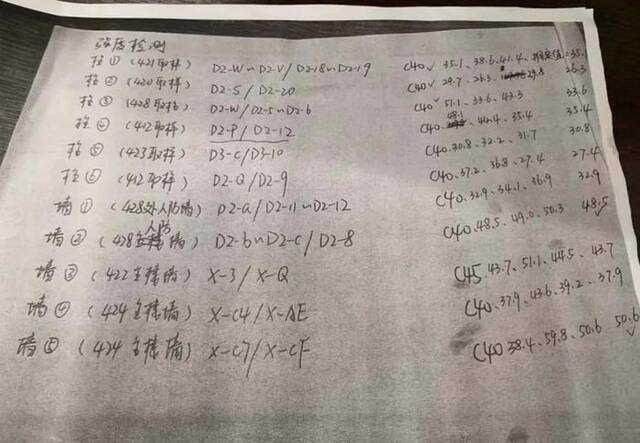 强度检测
柱① (421取样) D2-W~D2-V/D2-18~D2-19 C40✓ 35.1、38.6、41.4、推定值:35.1
柱② (420取样) D2-S/D2-20 C40✓ 29.7、26.3、29.8 26.3
柱③ (428取样) D2-W/D2-5~D2-6 C40✓ 51.1、33.6、43.3 33.6
柱④ (412取样) D2-P/D2-12 C40、48.1、44.4、35.4 35.4
柱⑤ (423取样) D3-C/D3-10 C40、30.8、32.2、31.7 30.8
柱⑥ (412取样) D2-Q/D2-9 C40、37.2、36.8、27.4 27.4
墙① (428外人防墙) D2-G/D2-11~D2-12 C40、32.9、34.1、36.9 32.9
墙② (428人防墙) D2-b~D2-C/D2-8 C40、48.5、49.0、50.3 48.5
墙③ (422主楼墙) X-3/X-Q C45、43.7、51.1、44.5、43.7
墙④ (424主楼墙) X-C4/X-AE C40、37.9、43.6、39.2、37.9
墙⑤ (424主楼墙) X-C7/X-CF C40 38.4、59.8、50.6 50.6✓